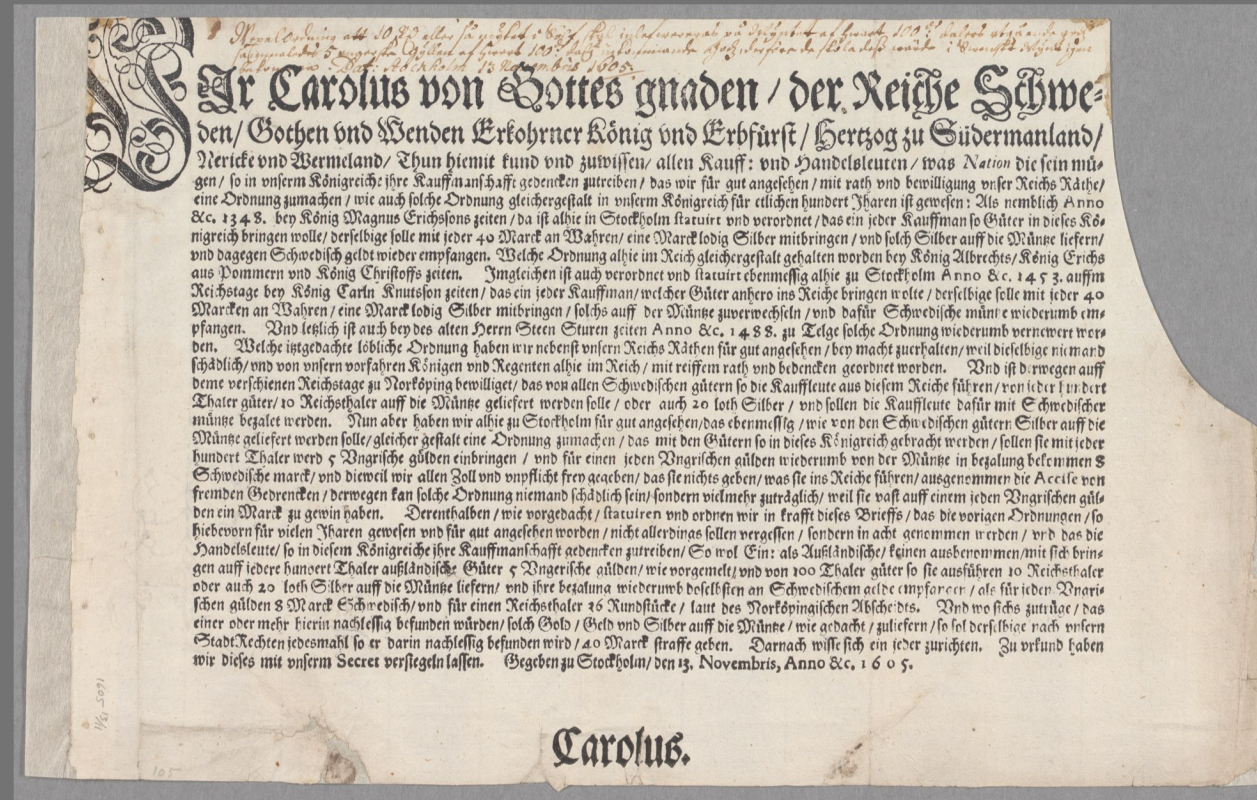 WIr Carolus von Gottes gnaden / der Reiche Schwe-
den/ Gothen vnd Wenden Erkohrner König vnd Erbfürst / Hertzog zu Südermanland/
Nericke vnd Wermeland/ Thun hiemit kund vnd zuwissen/ allen Kauff: vnd Handelsleuten / was Nation die sein mü-
gen / so in vnserm Königreiche jhre Kauffmanschafft gedencken zutreiben / das wir für gut angesehen / mit rath vnd bewilligung vnser Reichs Räthe/
eine Ordnung zumachen / wie auch solche Ordnung gleichergestalt in vnserm Königreich für etlichen hundert Jharen ist gewesen: Als nemblich Anno
&c. 1348. bey König Magnus Erichssons zeiten / da ist alhie in Stockholm statuirt vnd verordnet / das ein jeder Kauffman so Güter in dieses Kö-
nigreich bringen wolle / derselbige solle mit jeder 40 Marck an Wahren / eine Marck lodig Silber mitbringen / vnd solch Silber auff die Müntze liefern/
vnd dagegen Schwedisch geldt wieder empfangen. Welche Ordnung alhie im Reich gleichergestalt gehalten worden bey König Albrechts/ König Erichs
aus Pommern vnd König Christoffs zeiten. Jmgleichen ist auch verordnet vnd statuirt ebenmessig alhie zu Stockholm Anno &c. 1453. auffm
Reichstage bey König Carln Knutsson zeiten / das ein jeder Kauffman / welcher Güter anhero ins Reiche bringen wolte / derselbige solle mit jeder 40
Marcken an Wahren / eine Marck lodig Silber mitbringen / solchs auff der Müntze zuverwechseln / vnd dafür Schwedische müntze wiederumb em-
pfangen. Vnd letzlich ist auch bey des alten Herrn Steen Sturen zeiten Anno &c. 1488. zu Telge solche Ordnung wiederumb vernewert wor-
den. Welche itztgedachte löbliche Ordnung haben wir nebenst vnsern Reichs Räthen für gut angesehen / bey macht zuerhalten / weil dieselbige niemand
schädlich / vnd von vnsern vorfahren Königen vnd Regenten alhie im Reich / mit reiffem rath vnd bedencken geordnet worden. Vnd ist derwegen auff
deme verschienen Reichstage zu Norköping bewilliget / das von allen Schwedischen gütern so die Kauffleute aus diesem Reiche führen / von jeder hundert
Thaler güter / 10 Reichsthaler auff die Müntze geliefert werden solle / oder auch 20 loth Silber / vnd sollen die Kauffleute dafür mit Schwedischer
müntze bezalet werden. Nun aber haben wir alhie zu Stockholm für gut angesehen / das ebenmessig / wie von den Schwedischen gütern Silber auff die
Müntze geliefert werden solle / gleicher gestalt eine Ordnung zumachen / das mit den Gütern so in dieses Königreich gebracht werden / sollen sie mit jeder
hundert Thaler werd 5 Vngrische gülden einbringen / vnd für einen jeden Vngrischen gülden wiederumb von der Müntze in bezalung bekommen 8
Schwedische marck / vnd dieweil wir allen Zoll vnd vnpflicht frey gegeben / das sie nichts geben / was sie ins Reiche führen / ausgenommen die Accise von
fremden Gedrencken / derwegen kan solche Ordnung niemand schädlich sein / sondern vielmehr zuträglich / weil sie vast auff einem jeden Vngrischen gül-
den ein Marck zu gewin haben. Derenthalben / wie vorgedacht / statuiren vnd ordnen wir in krafft dieses Brieffs / das die vorigen Ordnungen / so
hiebevorn für vielen Jharen gewesen vnd für gut angesehen worden / nicht allerdings sollen vergessen / sondern in acht genommen werden / vnd das die
Handelsleute / so in diesem Königreiche jhre Kauffmanschafft gedencken zutreiben / So wol Ein: als Außländische / keinen ausbenommen / mit sich brin-
gen auff jedere hundert Thaler außländische Güter 5 Vngerische gülden / wie vorgemelt / vnd von 100 Thaler güter so sie ausführen 10 Reichsthaler
oder auch 20 loth Silber auff die Müntze liefern / vnd ihre bezalung wiederumb doselbsten an Schwedischem gelde empfangen / als für jeden Vngri-
schen gülden 8 Marck Schwedisch / vnd für einen Reichsthaler 36 Rundstücke / laut des Norköpingischen Abscheidts. Vnd wo sichs zutrüge / das
einer oder mehr hierin nachlessig befunden würden / solch Gold / Geld vnd Silber auff die Müntze / wie gedacht / zuliefern / so sol derselbige nach vnsern
Stadt Rechten jedesmahl so er darin nachlessig befunden wird / 40 Marck straffe geben. Darnach wisse sich ein jeder zurichten. Zu vrkund haben
wir dieses mit vnserm Secret versiegeln lassen. Gegeben zu Stockholm / den 13. Novembris, Anno &c. 1605.
Carolus.
1605 13/11
105